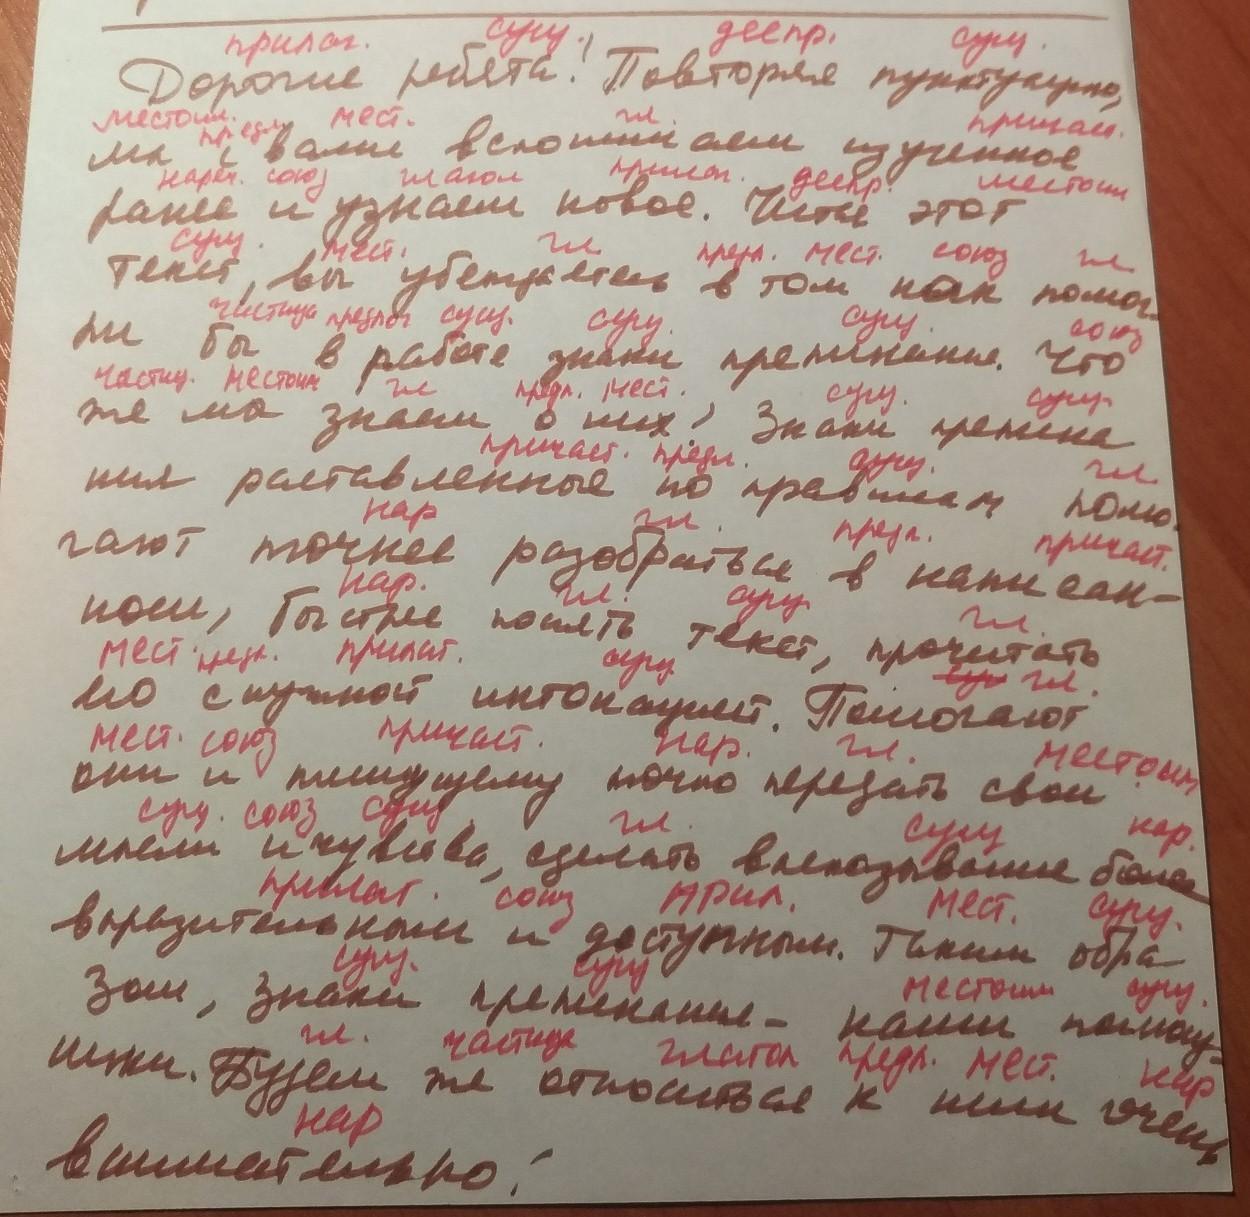 прилаг. сущ. деепр. сущ.
Дорогие ребята! Повторяя пунктуацию,
местоим. предл. мест. гл. причаст.
мы с вами вспоминаем изученное
нареч. союз глагол прилаг. деепр. местоим
ранее и узнаем новое. Читая этот
сущ. мест. гл предл. мест. союз гл
текст, вы убеждаетесь в том как помог-
частица предлог сущ. сущ. сущ. союз
ли бы в работе знаки препинания. Что
частиц. местоим гл предл. мест. сущ. сущ.
же мы знаем о них? Знаки препина
причаст. предл. сущ. гл
ния раставленные по правилам помо-
нар гл. предл. причаст.
гают точнее разобраться в написан-
нар. гл. сущ. гл.
ном, быстрее понять текст, прочитать
мест. предл. прилаг. сущ гл.
его с нужной интонацией. Помогают
мест. союз причаст. нар. гл. местоим
они и пишущему точно передать свои
сущ. союз сущ. гл. сущ нар.
мысли и чувства, сделать высказывание более
прилаг. союз прил. мест. сущ.
выразительным и доступным. Таким обра
сущ. сущ местоим сущ.
зом, знаки препинания - наши помощ-
гл. частица глагол предл. мест. нар
ники. Будем же относиться к ним очень
нар
внимательно!